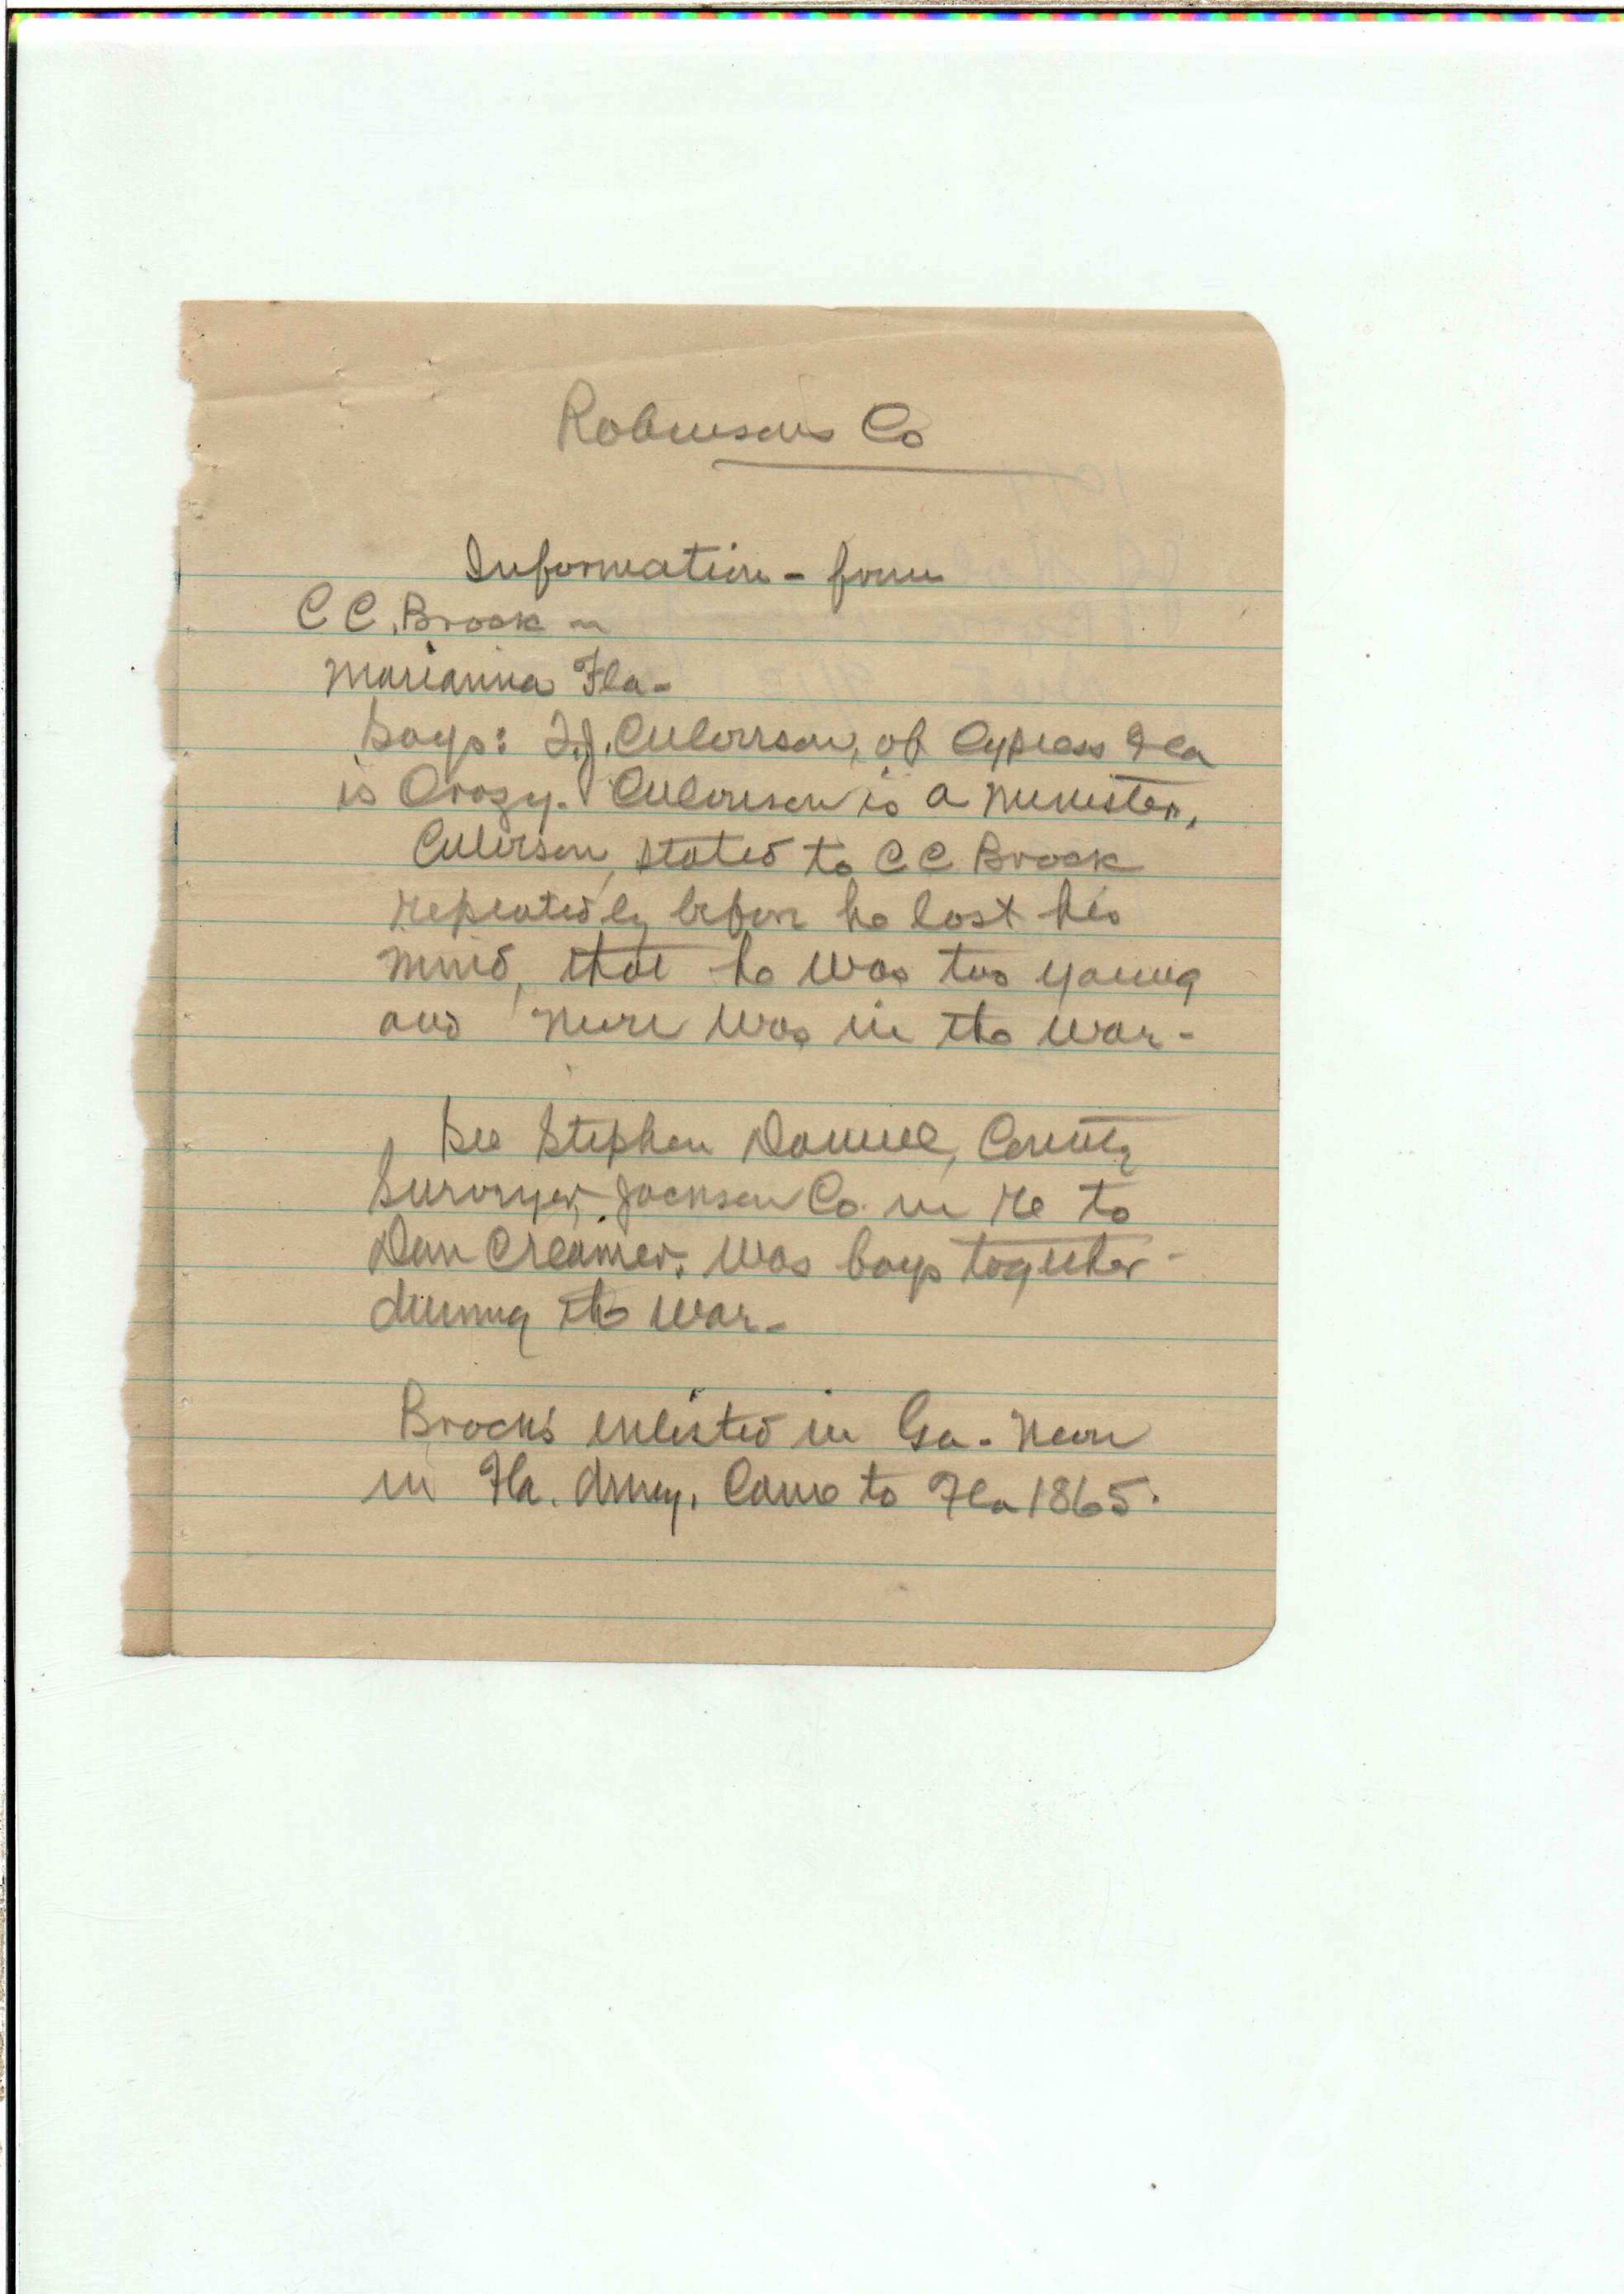 Robinsons Co
Information - from
C C. Brock -
Marianna Fla -
Says: T.J. Culverson, of Cypress Fla
is Crazy. Culverson is a minister,
Culverson, stated to C C Brock
repeatedly before he lost his
mind, that he was too young
and never was in the war -
See Stephen Daniel, County
Surveyor, Jackson Co. in re to
Dan Creamer. Was boys together -
during the war -
Brock's enlisted in Ga - Never
in Fla. Army. Came to Fla 1865.